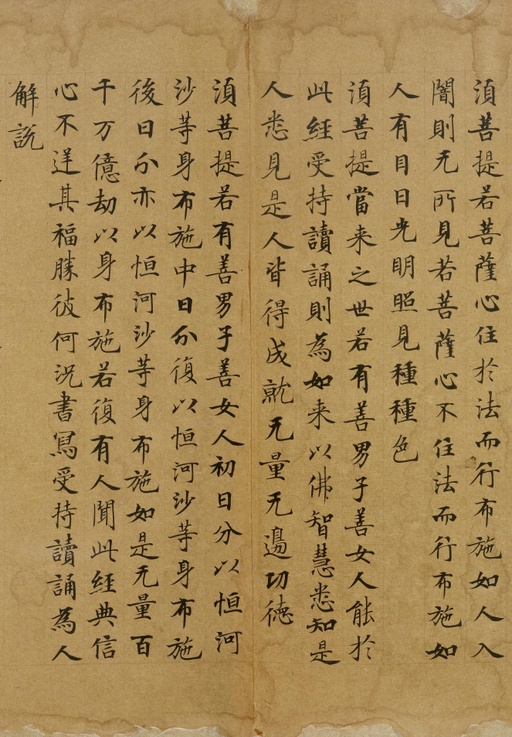 湏菩提若菩薩心住於法而行布施如人入
闇則无所見若菩薩心不住法而行布施如
人有目日光明照見種種色
湏菩提當来之世若有善男子善女人能於
此經受持讀誦則為如来以佛智慧悉知是
人悉見是人皆得成就无量无邊功德
湏菩提若有善男子善女人初日分以恒河
沙等身布施中日分復以恒河沙等身布施
後日分亦以恒河沙等身布施如是无量百
千万億劫以身布施若復有人聞此經典信
心不逆其福勝彼何況書寫受持讀誦為人
解説